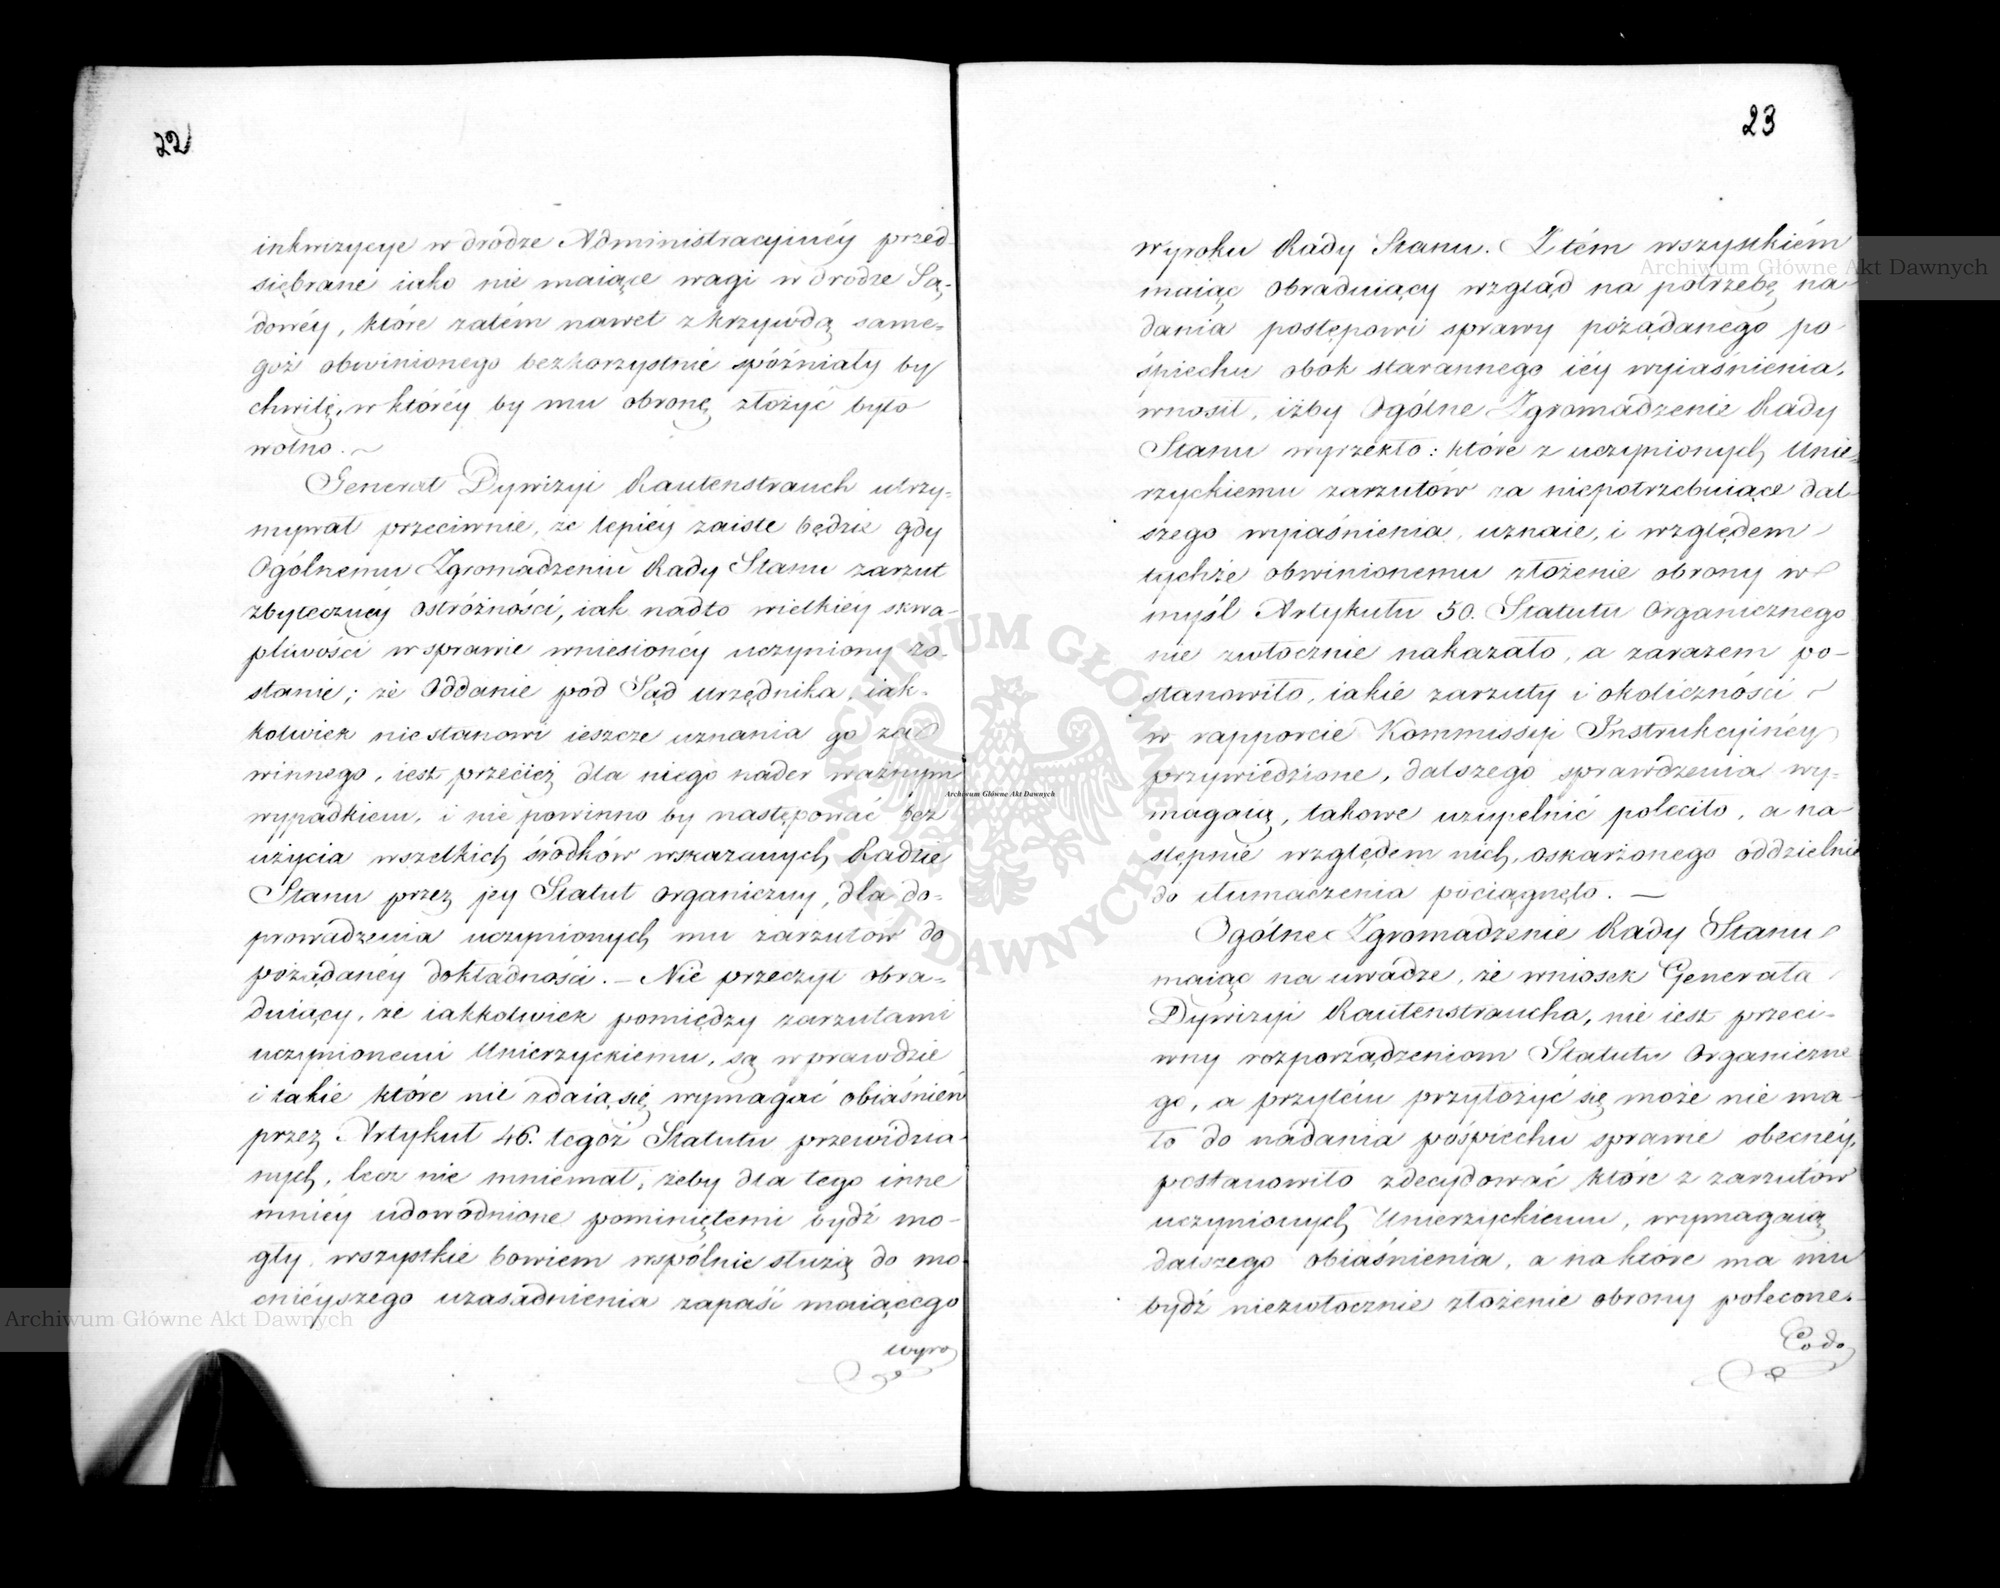 22
inkwizycye w drodze Administracyinéy przed-
siębrane iako nie maiące wagi w drodze Są-
dowéy, które zatém nawet z krzywdą same-
goż obwinionego bezkorzystnie spóźniały by
chwilę, w któréy by mu obronę złożyć było
wolno. ~
Generał Dywizyi Rautenstrauch utrzy-
mywał przeciwnie, że lepiéy zaiste będzie gdy
Ogólnemu Zgromadzeniu Rady Stanu zarzut
zbyteczney ostróżności, iak nadto wielkiéy skwa-
pliwości w sprawie wniesionéy uczyniony zo-
stanie; że Oddanie pod Sąd urzędnika, iak-
kolwiek nie stanowi ieszcze uznania go za
winnego, iest przecież dla niego nader ważnym
wypadkiem, i nie powinno by następować bez
użycia wszelkich środków wskazanych Radzie
Stanu przez jey Statut organiczny, dla do-
prowadzenia uczynionych mu zarzutów do
pożądanéy dokładności. — Nie przeczył obra-
duiący, że iakkolwiek pomiędzy zarzutami
uczynionemi Unierzyckiemu, są wprawdzie
i takie które nie zdaią się wymagać obiaśnień
przez Artykuł 46. tegoż Statutu przewidzia-
nych, lecz nie mniemał, żeby dla tego inne
mniéy udowodnione pominiętemi bydź mo-
gły, wszystkie bowiem wspólnie służą do mo-
cnieyszego uzasadnienia zapaść maiącego
wyro
23
wyroku Rady Stanu. Z tém wszystkiém
maiąc obraduiący wzgląd na potrzebę na
dania postępowi sprawy pożądanego po-
śpiechu obok starannego iéy wyiaśnienia,
wnosił, iżby Ogólne Zgromadzenie Rady
Stanu wyrzekło: które z uczynionych Unie-
rzyckiemu zarzutów za niepotrzebuiące dal-
szego wyiaśnienia, uznaie, i względem
tychże obwinionemu złożenie obrony w
myśl Artykułu 50. Statutu Organicznego
nie zwłocznie nakazało, a zarazem po-
stanowiło, iakie zarzuty i okoliczności
w rapporcie Kommissyi Instrukcyinéy
przywiedzione, dalszego sprawdzenia wy-
magaią, takowe uzupełnić poleciło, a na-
stępnie względem nich, oskarżonego oddzielnie
do tłumaczenia pociągnęło. —
Ogólne Zgromadzenie Rady Stanu
maiąc na uwadze, że wniosek Generała
Dywizyi Rautenstraucha, nie iest przeci-
wny rozporządzeniom Statutu Organiczne
go, a przytém przyłożyć się może nie ma-
ło do nadania pośpiechu sprawie obecnéy,
postanowiło zdecydować które z zarzutów
uczynionych Unierzyckiemu, wymagaią
dalszego obiaśnienia, a na które ma mu
bydź niezwłocznie złożenie obrony polecone. –
Co do
Archiwum Główne Akt Dawnych
Archiwum Główne Akt Dawnych
Archiwum Główne Akt Dawnych
ARCHIWUM GŁÓWNE
· AKT DAWNYCH ·